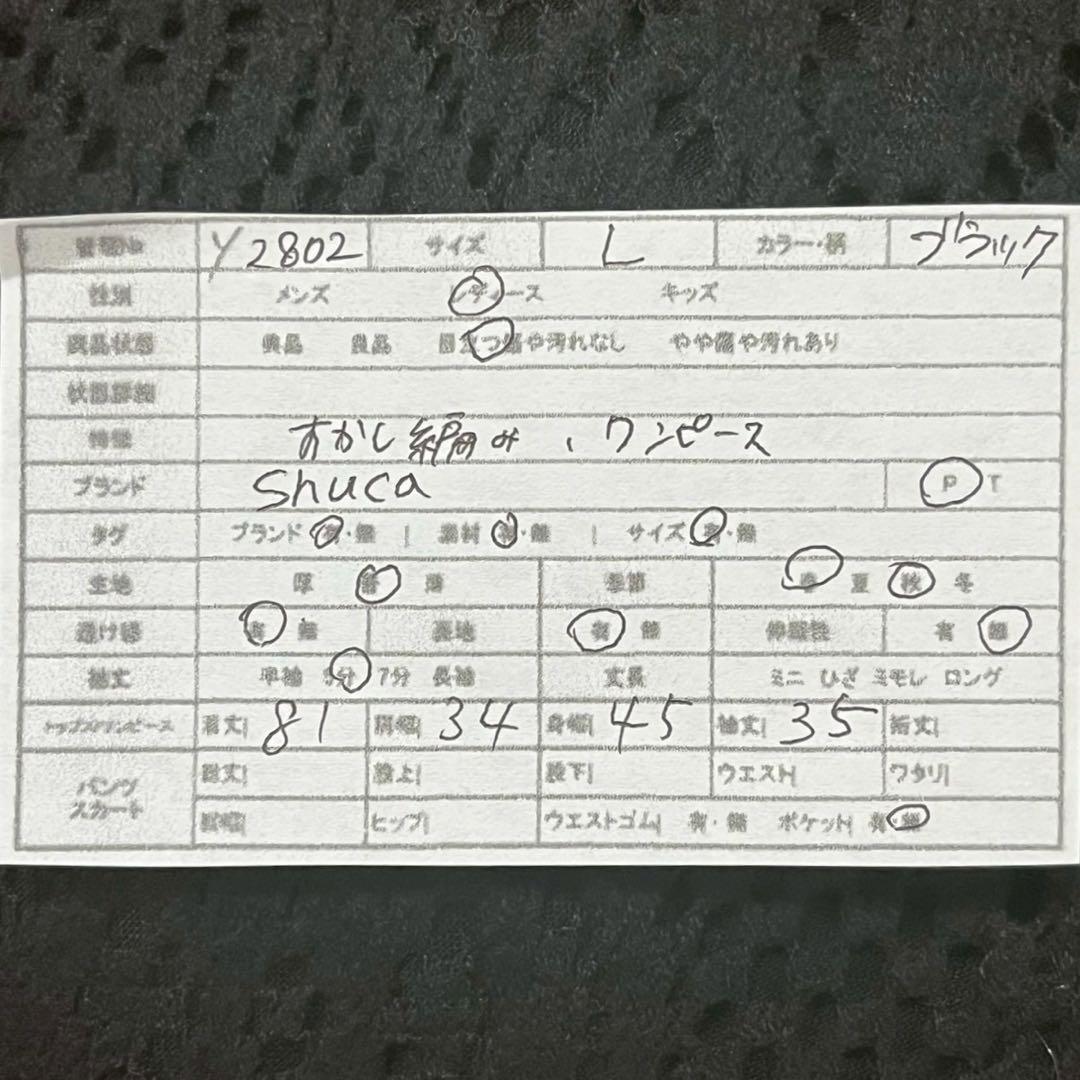 管理No Y2802 サイズ L カラー・柄 ブラック
性別 メンズ レディース キッズ
商品状態 良品 目立つ傷や汚れなし やや傷や汚れあり
状態詳細
特徴 すかし編み、ワンピース
ブランド Shuca P T
タグ ブランド 有・無 | 素材 有・無 | サイズ 有・無
生地 厚 普 薄 季節 春 夏 秋 冬
透け感 有 無 裏地 有 無 伸縮性 有 無
袖丈 半袖 5分 7分 長袖 丈長 ミニ ひざ ミモレ ロング
トップス/ワンピース 着丈| 81 肩幅| 34 身幅| 45 袖丈| 35 裄丈|
パンツ スカート 総丈| 股上| 股下| ウエスト| ワタリ|
裾幅| ヒップ| ウエストゴム| 有・無 ポケット| 有・無